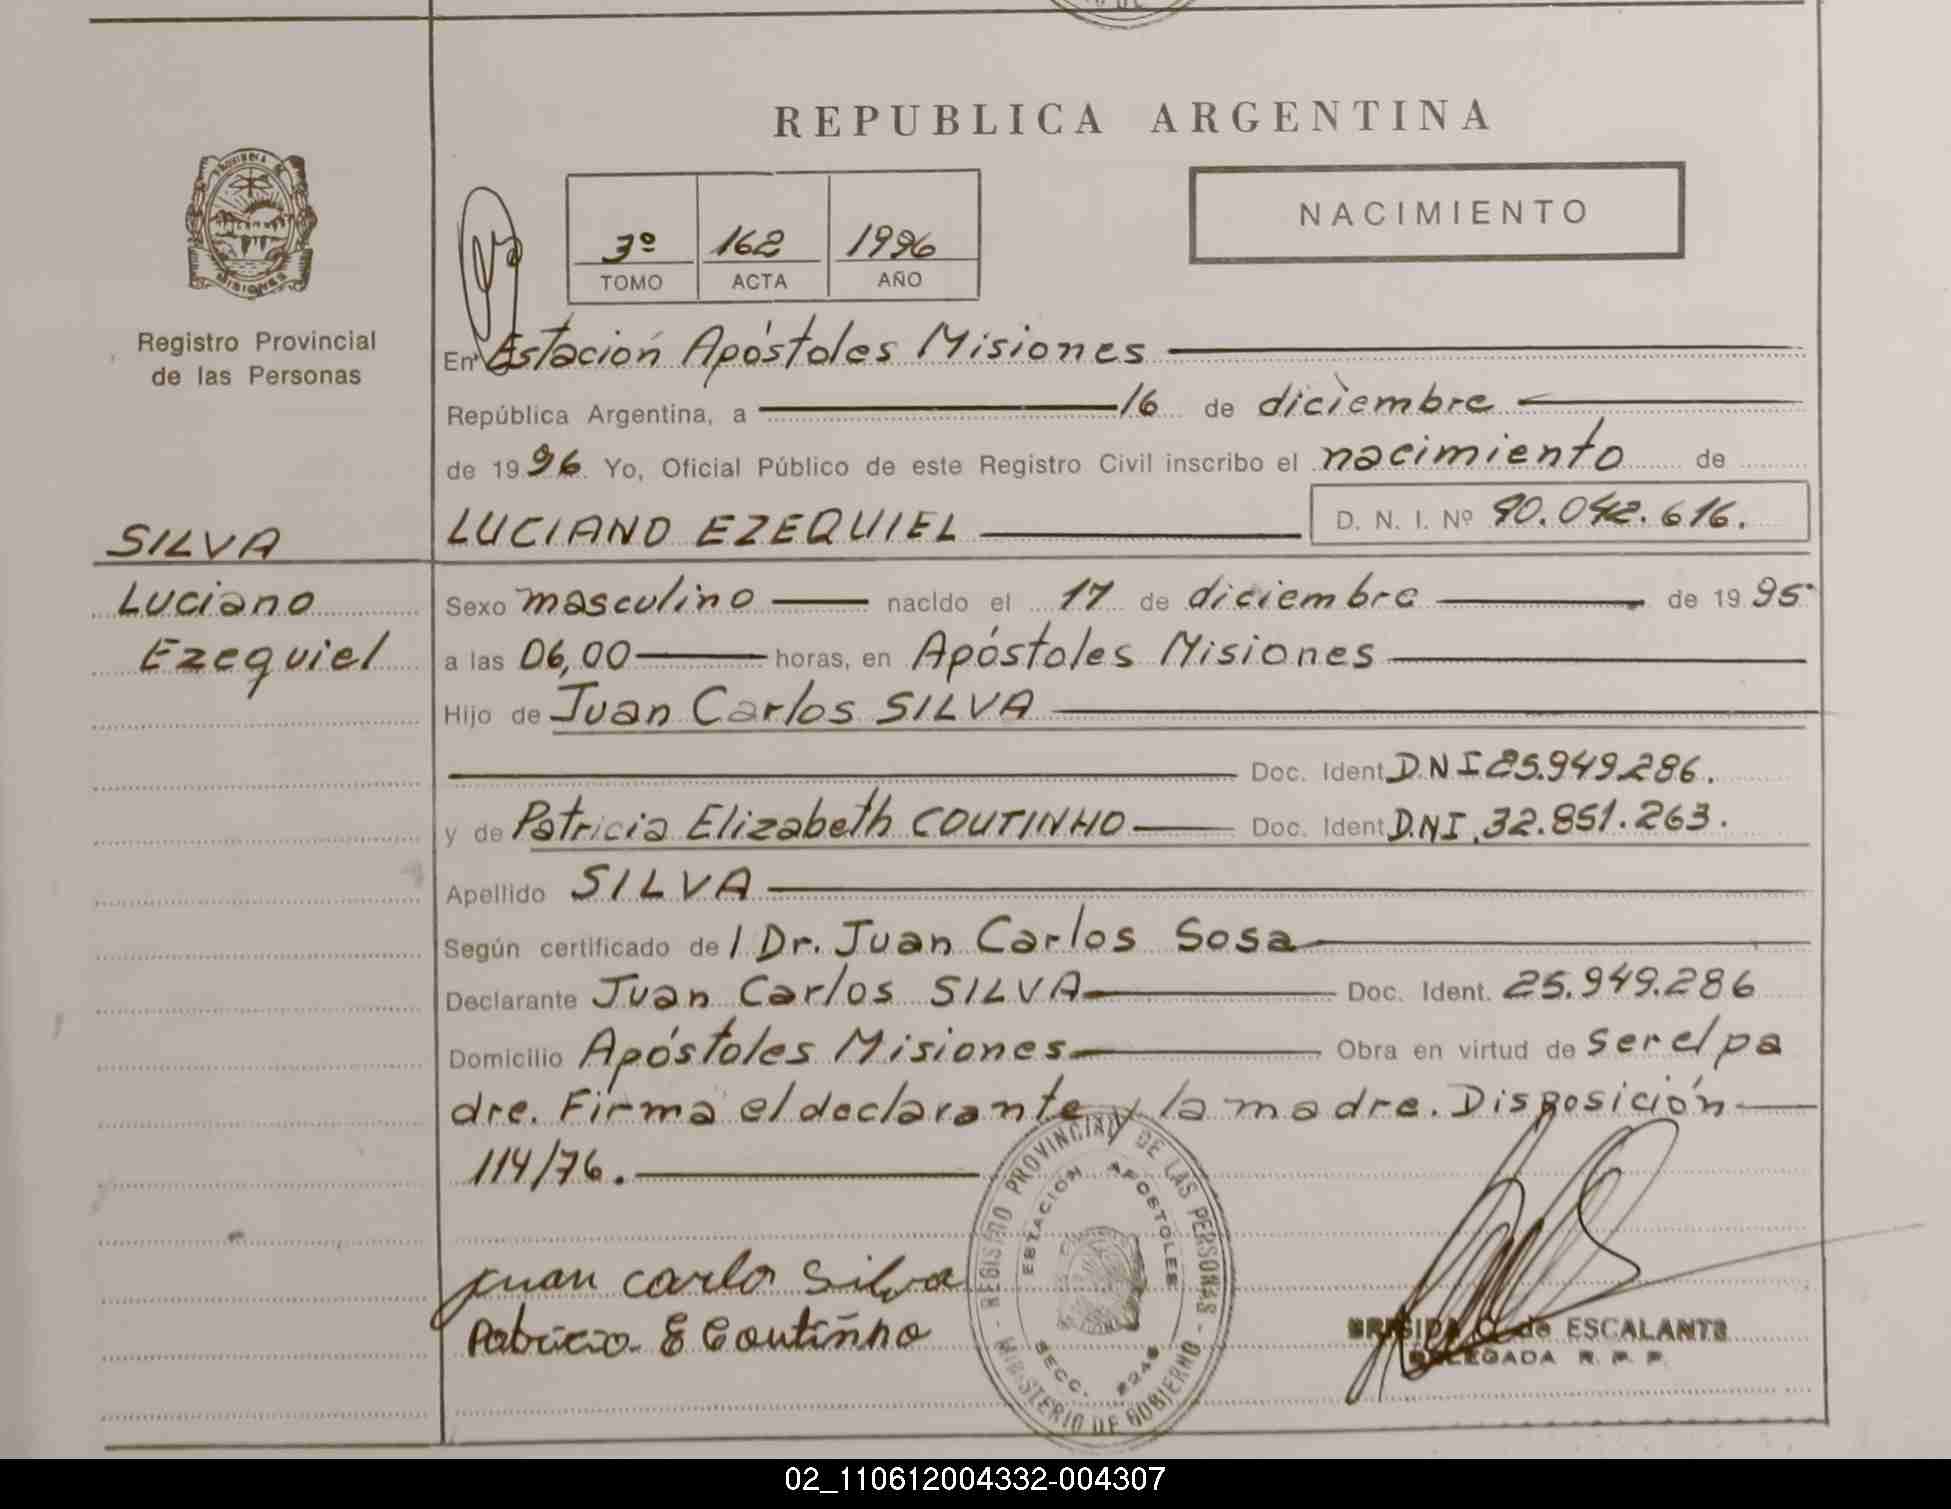 REPUBLICA ARGENTINA
NACIMIENTO
3º 162 1996
TOMO ACTA AÑO
Registro Provincial
de las Personas
En Estación Apóstoles Misiones
República Argentina, a 16 de diciembre
de 1996. Yo, Oficial Público de este Registro Civil inscribo el nacimiento de
SILVA
LUCIANO EZEQUIEL D. N. I. Nº 90.042.616.
Luciano
Ezequiel
Sexo masculino nacido el 17 de diciembre de 1995
a las 06,00 horas, en Apóstoles Misiones
Hijo de Juan Carlos SILVA
Doc. Ident. DNI 25.949.286.
y de Patricia Elizabeth COUTINHO Doc. Ident. DNI. 32.851.263.
Apellido SILVA
Según certificado de / Dr. Juan Carlos Sosa
Declarante Juan Carlos SILVA Doc. Ident. 25.949.286
Domicilio Apóstoles Misiones Obra en virtud de ser el pa
dre. Firma el declarante y la madre. Disposición
114/76.
REGISTRO PROVINCIAL DE LAS PERSONAS - MINISTERIO DE GOBIERNO -
ESTACIÓN APOSTOLES
SECC.
Juan Carlo Silva
Patricia E Coutinho
de ESCALANTE
DELEGADA R. P. P.
02_110612004332-004307